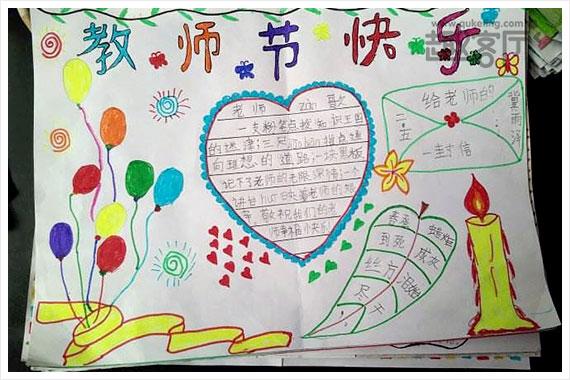 教师节快乐
www.quketing.com
趣客厅
老师 zàn 歌
一支粉笔点拨知识王国
的迷津;三尺jiàobiān指点通
向理想的道路;一块黑板
记下了老师的无限深情;一个
讲台
着老师的
敬祝我们的老
师幸福、快乐!
给老师的
一封信
二.五
冀雨泽
春蚕
到死
丝方
尽
蜡炬
成灰
泪始
干